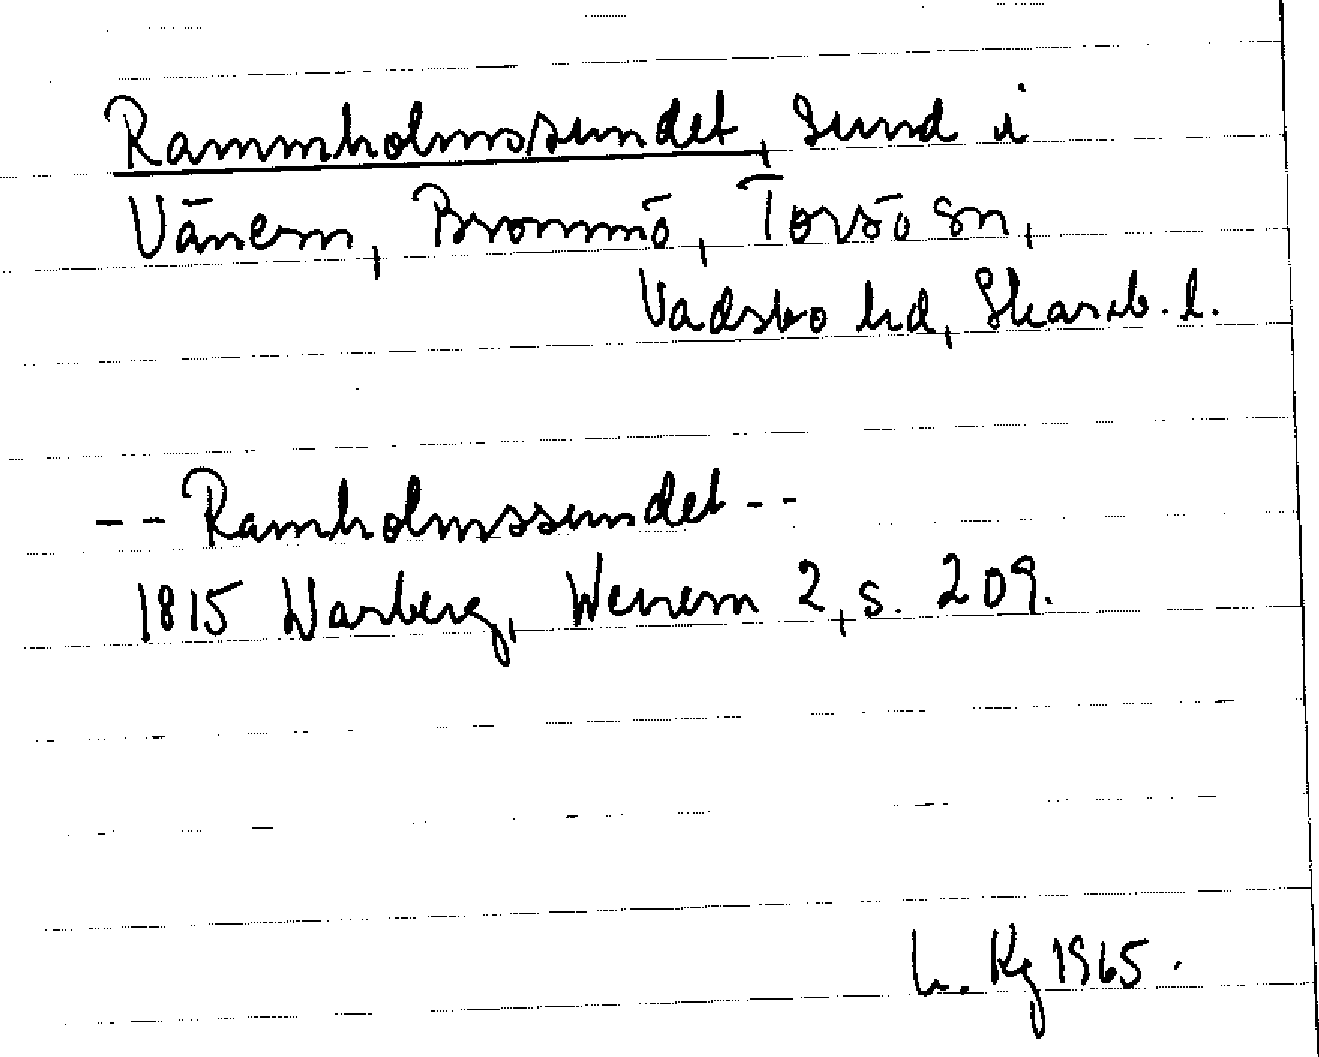 Rammholmssundet, sund i
Vänern, Brommö, Torsö sn,
Vadsbo hd, Skarab. l.
-- Ramholmssundet --
1815 Warberg, Wenern 2, s. 209.
Kg 1965.